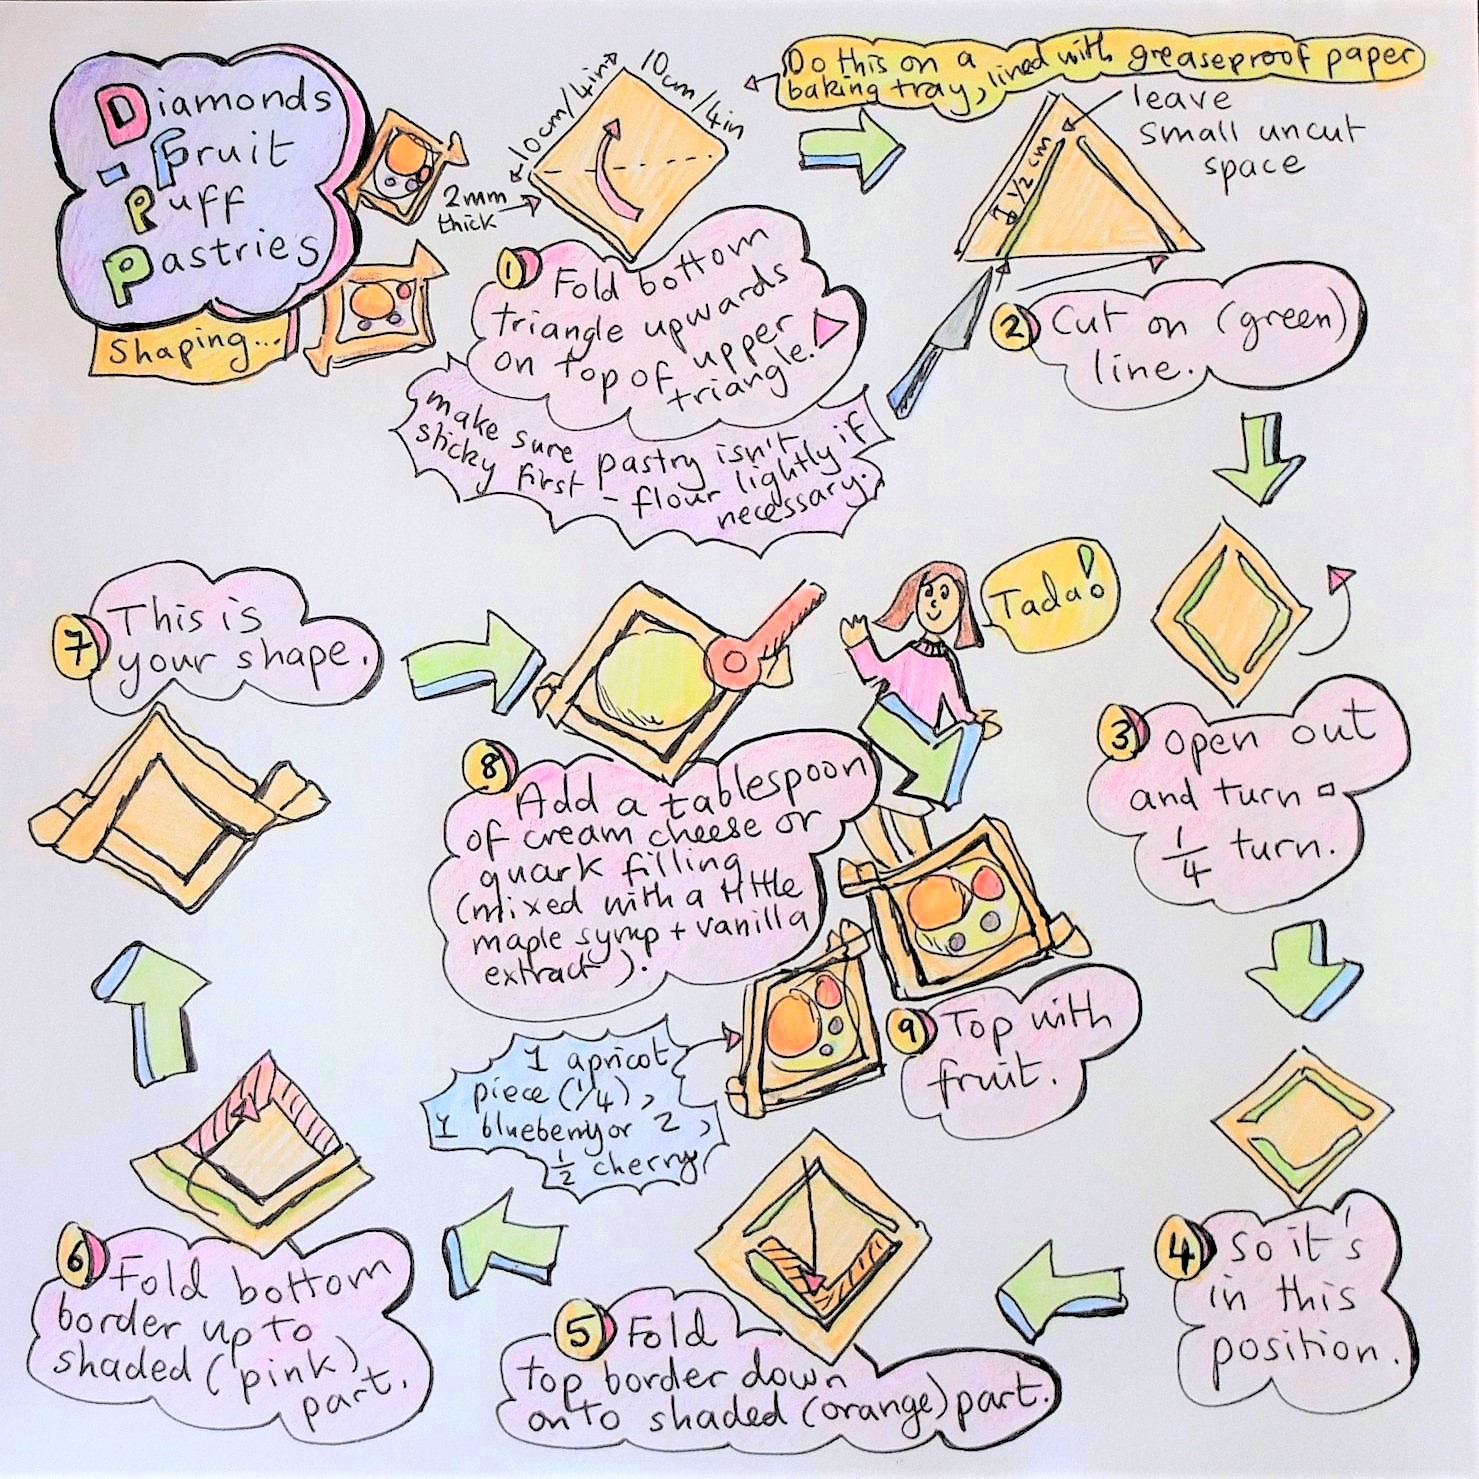 Diamonds
- Fruit
Puff
Pastries
Shaping...
10cm/4in
10cm/4in
2mm
thick
Do this on a
baking tray, lined with greaseproof paper
leave
small uncut
space
1 1/2 cm
1 Fold bottom
triangle upwards
on top of upper
triangle.
make sure pastry isn't
sticky first - flour lightly if
necessary.
2 Cut on (green)
line.
3 Open out
and turn
1/4 turn.
4 So it's
in this
position.
5 Fold
top border down
onto shaded (orange) part.
6 Fold bottom
border up to
shaded (pink)
part.
7 This is
your shape.
8 Add a tablespoon
of cream cheese or
quark filling
(mixed with a little
maple syrup + vanilla
extract).
Tada!
9 Top with
fruit.
1 apricot
piece (1/4),
1 blueberry or 2,
1/2 cherry